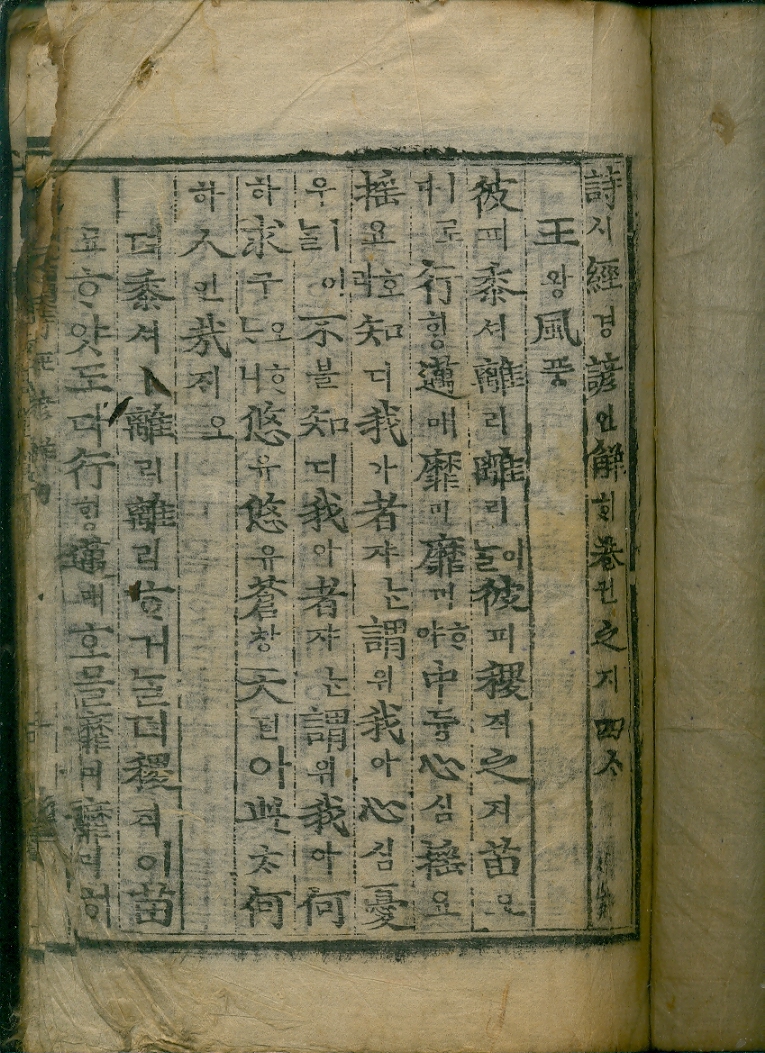 詩시經경諺언解ᄒᆡ卷권之지四ᄉᆞ
王왕風풍
彼피黍셔離리離리이ᄂᆞᆯ彼피稷직之지苗묘
ㅣ로다行ᄒᆡᆼ邁매靡미靡미ᄒᆞ야中듕心심搖요
搖요호라知디我아者쟈ᄂᆞᆫ謂위我아心심憂
우ㅣ어ᄂᆞᆯ不블知디我아者쟈ᄂᆞᆫ謂위我아何
하求구오ᄒᆞᄂᆞ니悠유悠유蒼창天텬아此ᄎᆞ何
하人인哉ᄌᆡ오
뎌黍셔ㅣ離리離리ᄒᆞ거늘뎌稷직이苗
묘ᄒᆞ얏도다行ᄒᆡᆼ邁매호믈靡미靡미히